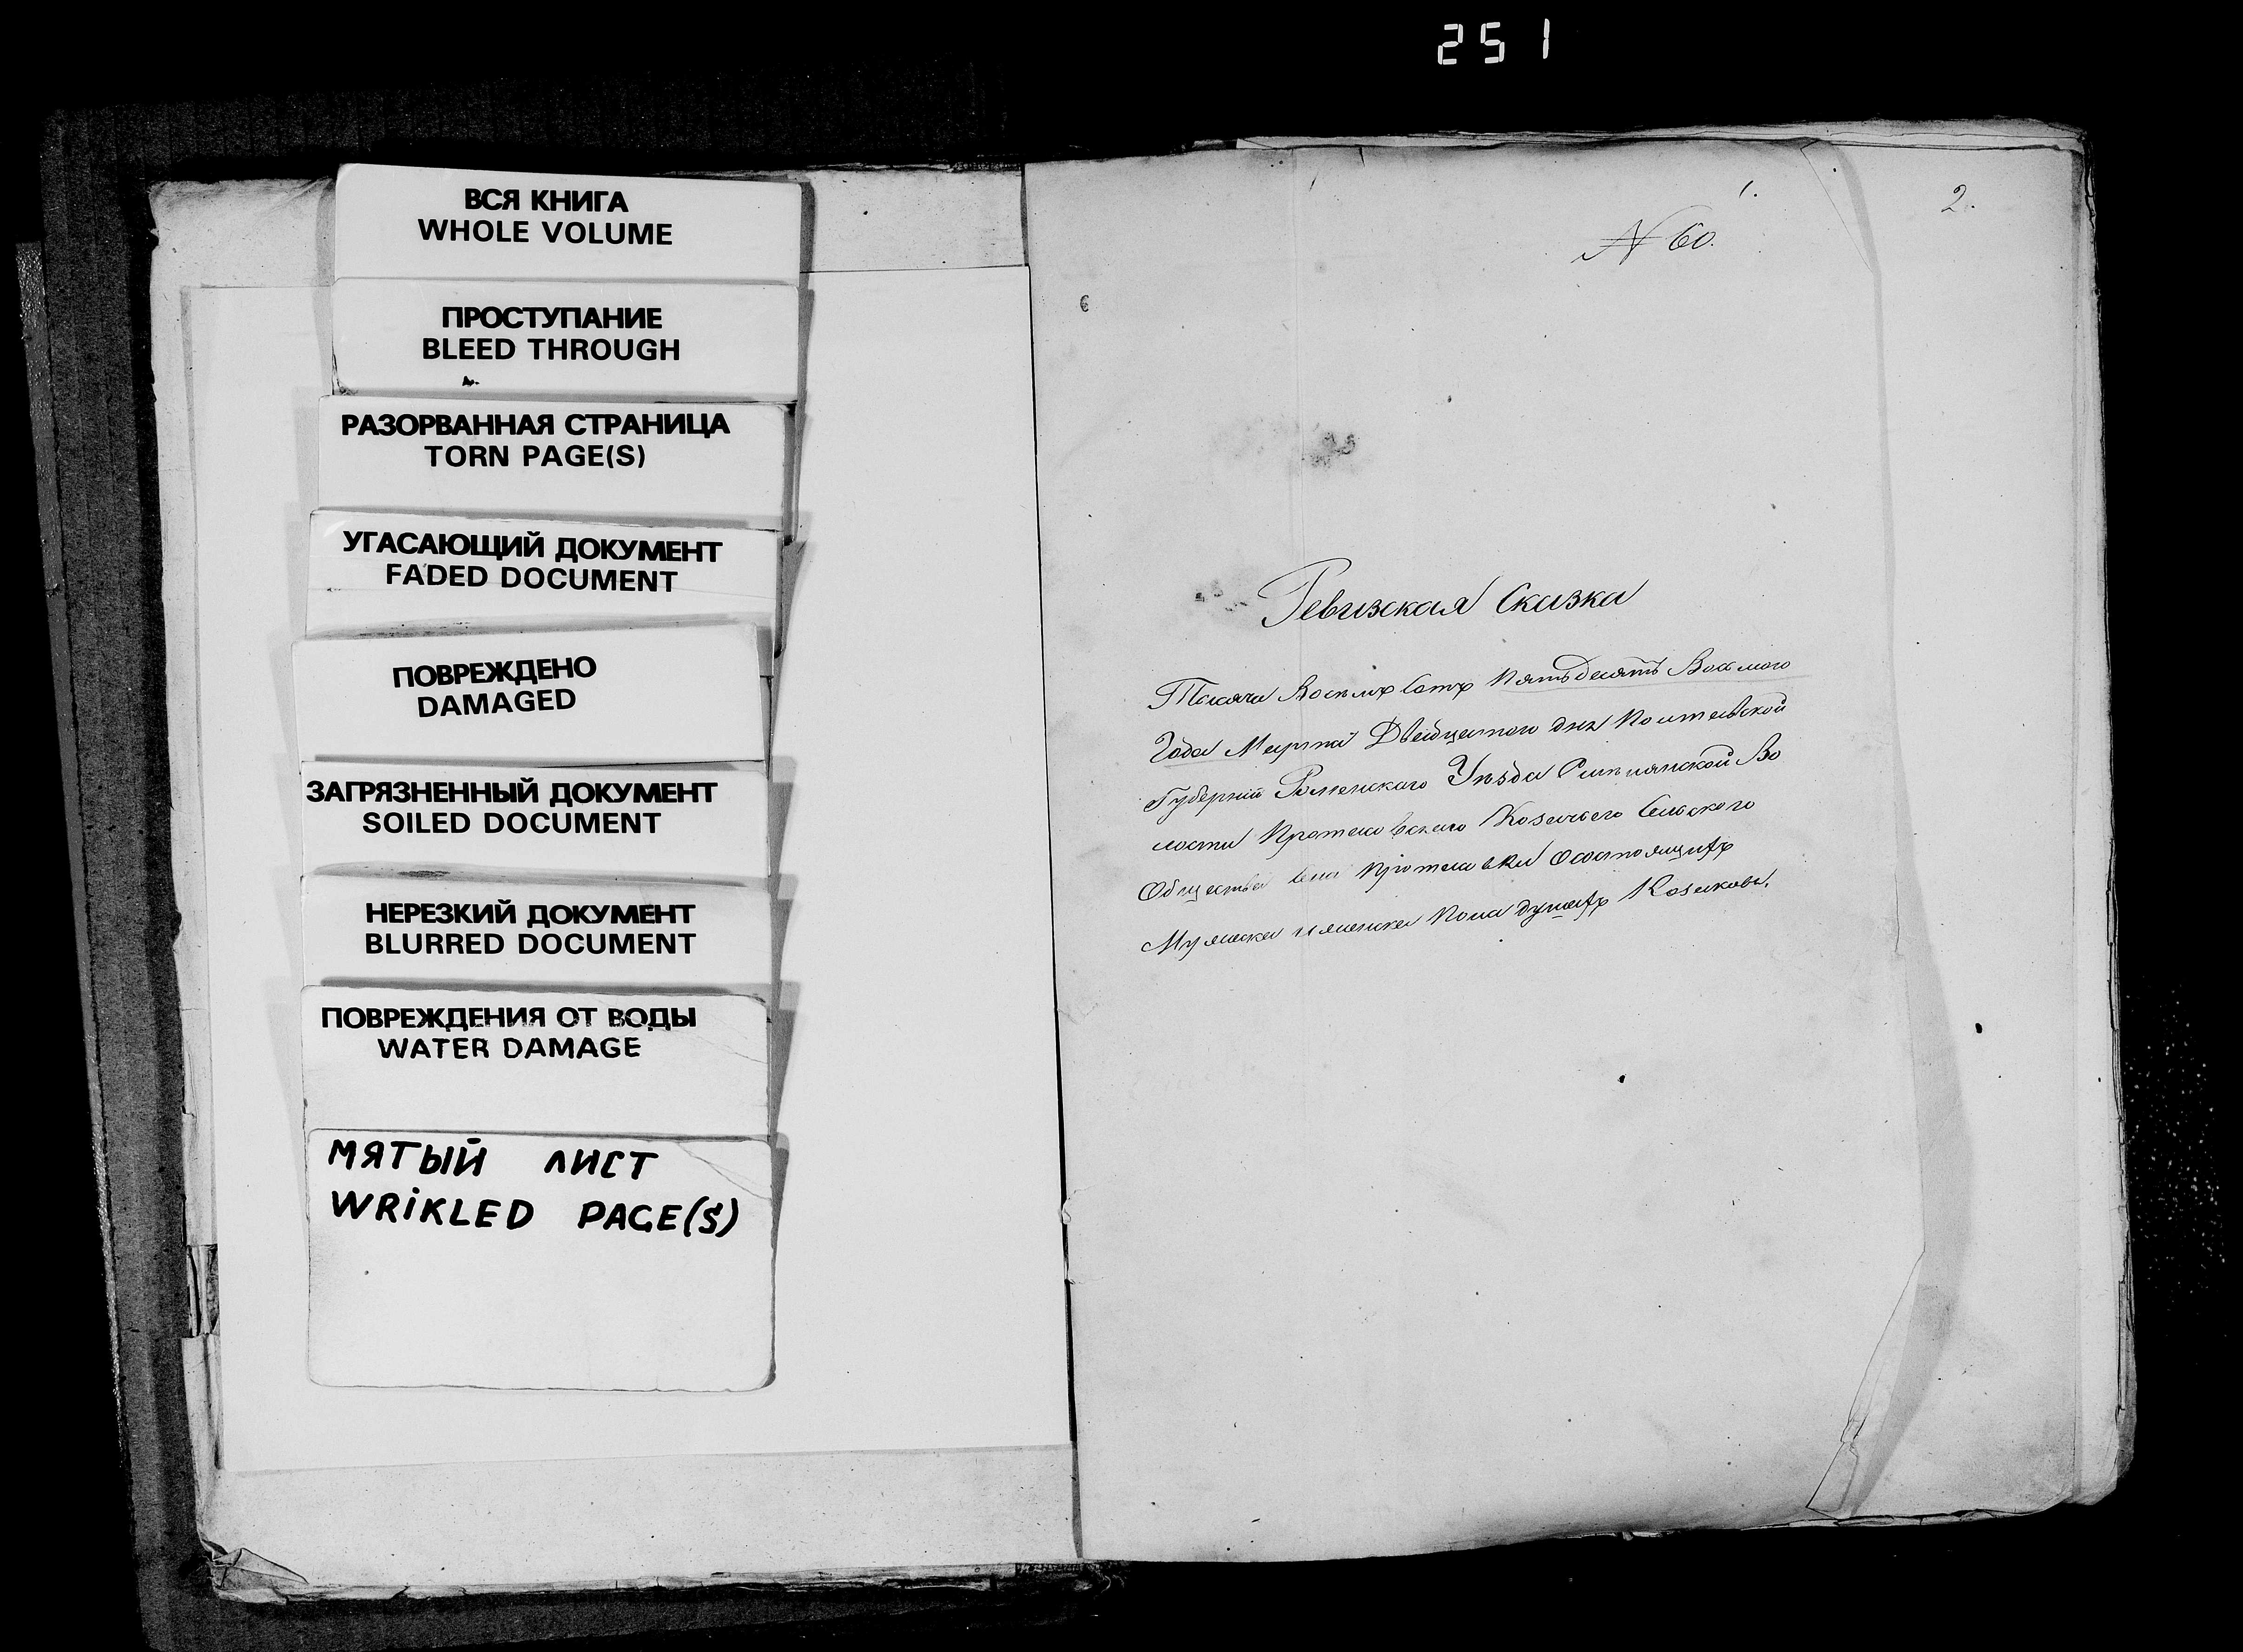 251
ВСЯ КНИГА
WHOLE VOLUME
ПРОСТУПАНИЕ
BLEED THROUGH
РАЗОРВАННАЯ СТРАНИЦА
TORN PAGE(S)
УГАСАЮЩИЙ ДОКУМЕНТ
FADED DOCUMENT
ПОВРЕЖДЕНО
DAMAGED
ЗАГРЯЗНЕННЫЙ ДОКУМЕНТ
SOILED DOCUMENT
НЕРЕЗКИЙ ДОКУМЕНТ
BLURRED DOCUMENT
ПОВРЕЖДЕНИЯ ОТ ВОДЫ
WATER DAMAGE
МЯТЫЙ ЛИСТ
WRiKLED PAGE(S)
1.
2.
N 60.
Ревизская Сказка
Тысяча Восемьсотъ Пятьдесятъ Восьмого
Года Марта Двадцатого дня Полтавской
Губерніи Роменскаго Уѣзда Во
лости Козачьего Сельского
Общества Села Осостоящихъ
Мужеска и женска Пола душахъ Козаковъ,